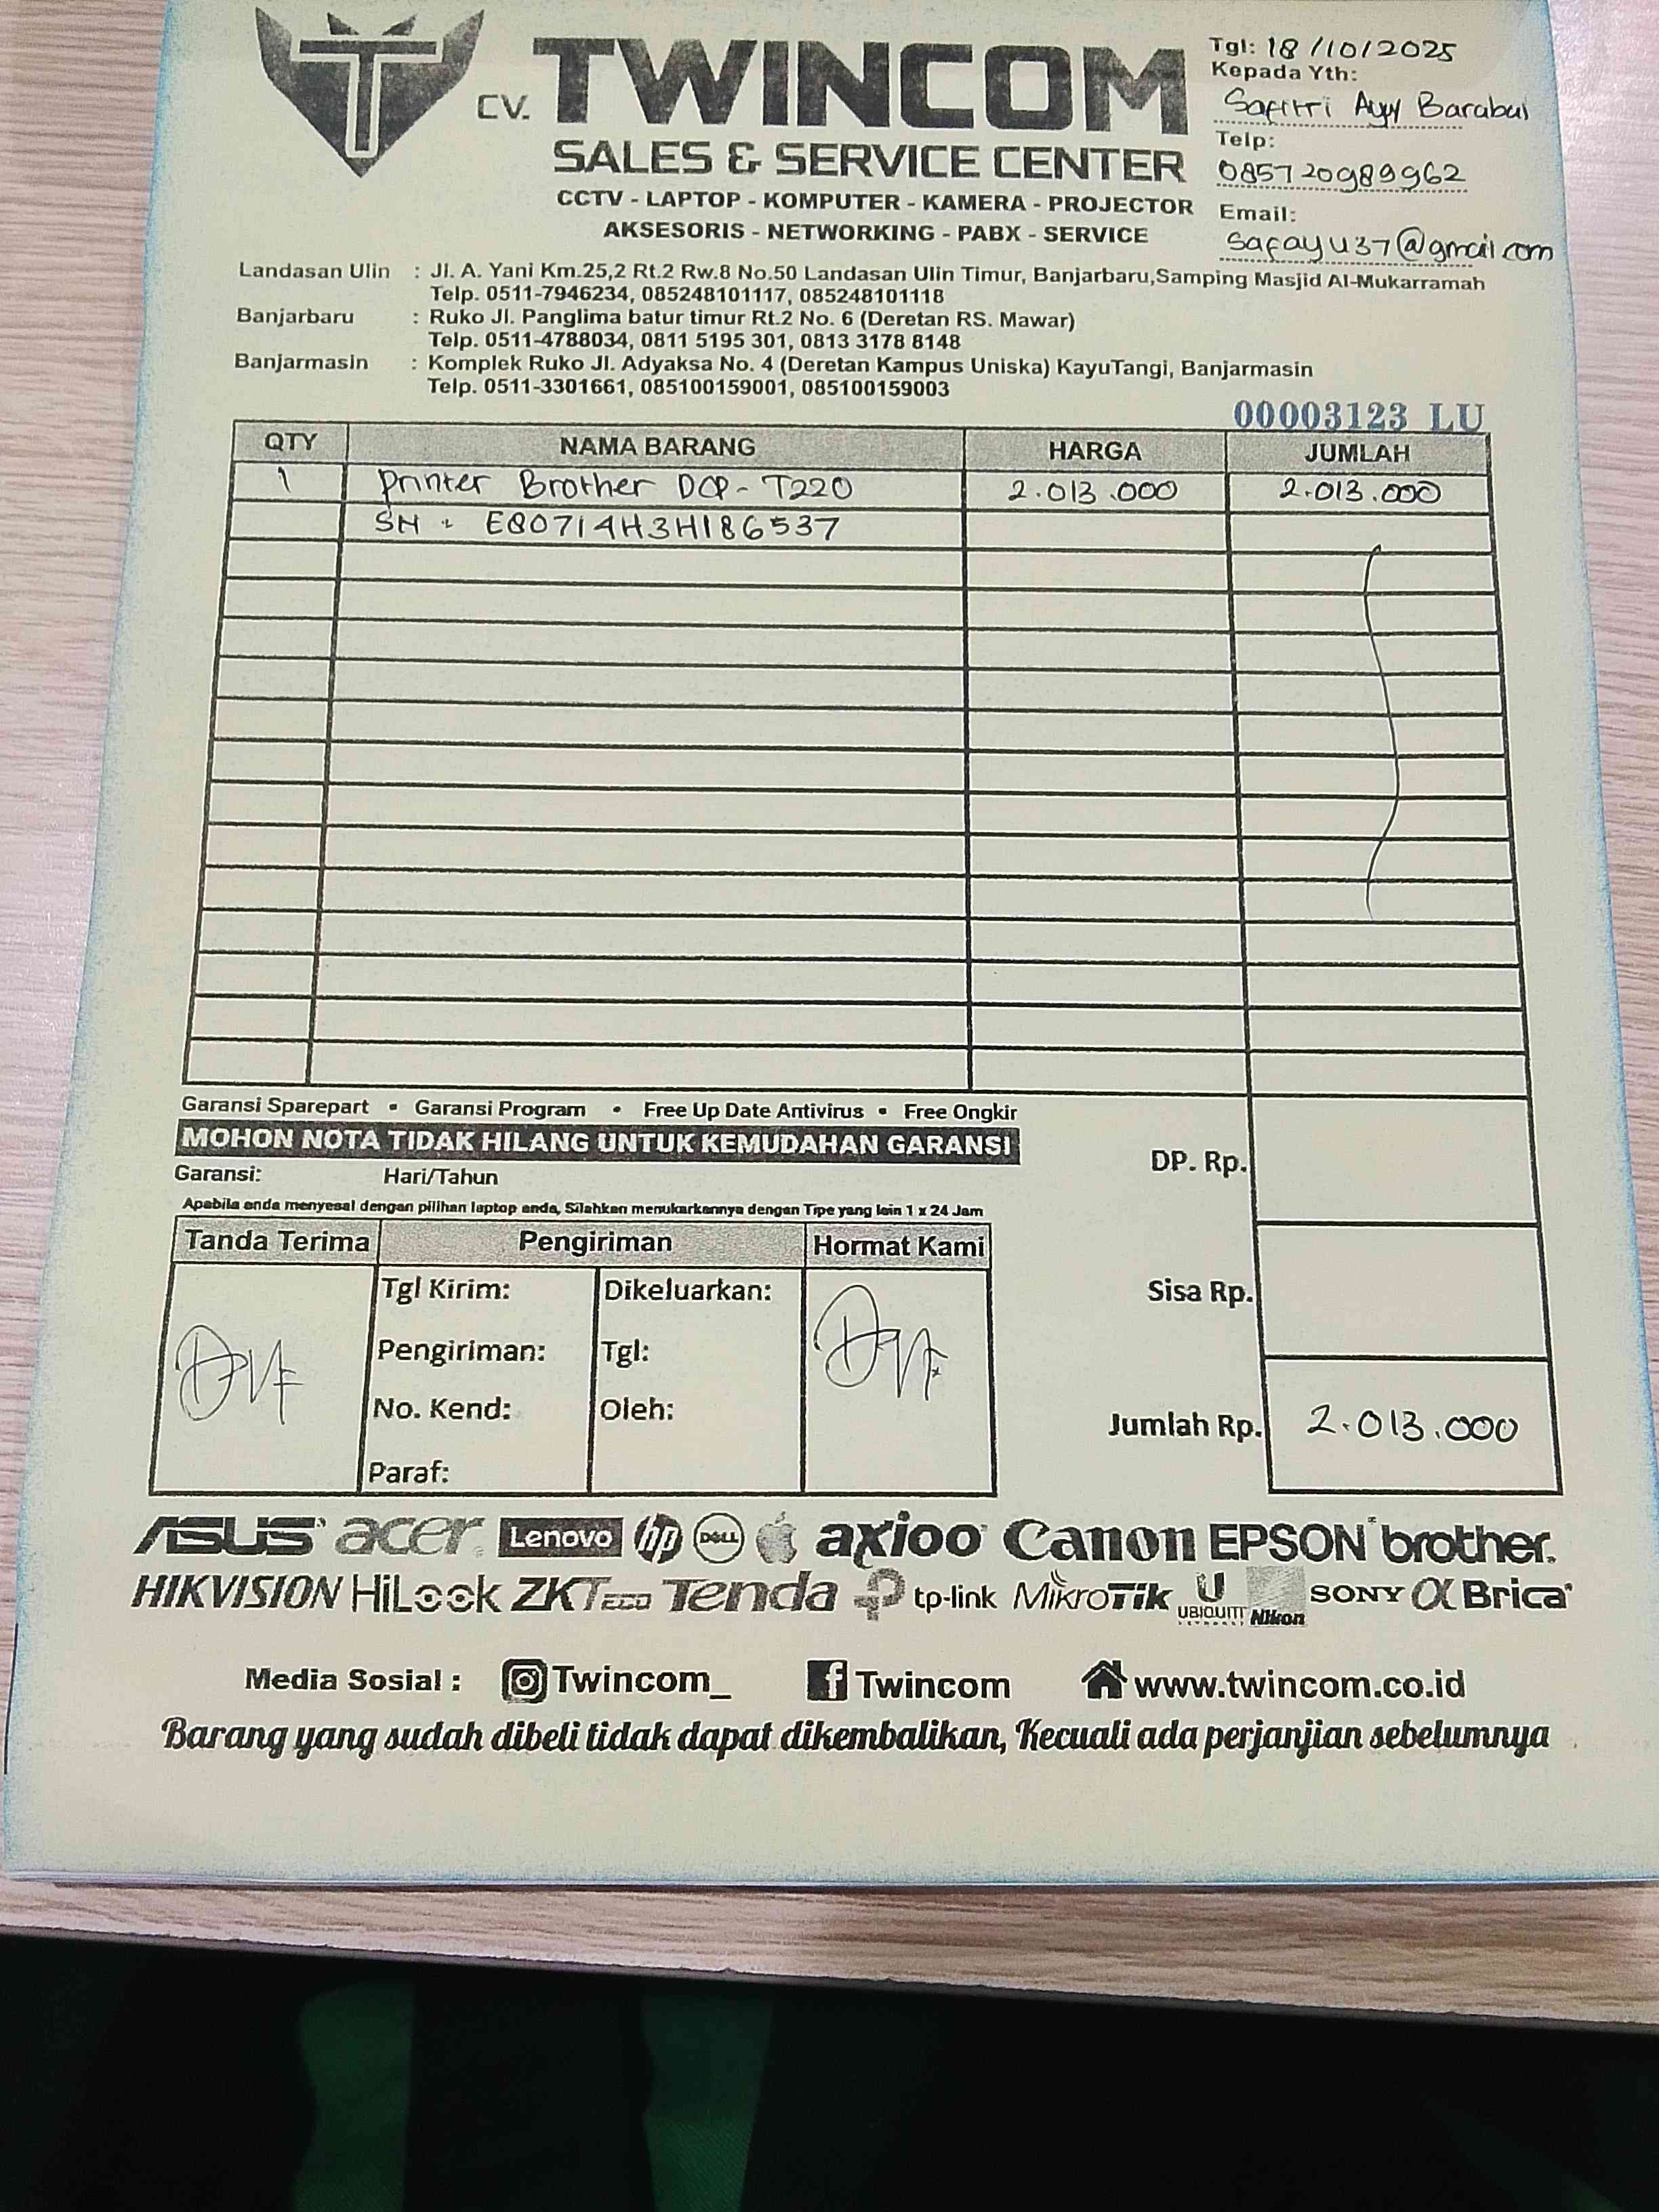 CV. TWINCOM
SALES & SERVICE CENTER
CCTV - LAPTOP - KOMPUTER - KAMERA - PROJECTOR
AKSESORIS - NETWORKING - PABX - SERVICE
Tgl: 18/10/2025
Kepada Yth:
Safitri Ayy Barabai
Telp:
085720989962
Email:
safayu37@gmail.com
Landasan Ulin : Jl. A. Yani Km.25,2 Rt.2 Rw.8 No.50 Landasan Ulin Timur, Banjarbaru,Samping Masjid Al-Mukarramah
Telp. 0511-7946234, 085248101117, 085248101118
Banjarbaru : Ruko Jl. Panglima batur timur Rt.2 No. 6 (Deretan RS. Mawar)
Telp. 0511-4788034, 0811 5195 301, 0813 3178 8148
Banjarmasin : Komplek Ruko Jl. Adyaksa No. 4 (Deretan Kampus Uniska) KayuTangi, Banjarmasin
Telp. 0511-3301661, 085100159001, 085100159003
00003123 LU
QTY NAMA BARANG HARGA JUMLAH
1 Printer Brother DCP-T220 2.013.000 2.013.000
SN : E80714H3H186537
Garansi Sparepart • Garansi Program • Free Up Date Antivirus • Free Ongkir
MOHON NOTA TIDAK HILANG UNTUK KEMUDAHAN GARANSI
Garansi: Hari/Tahun
Apabila anda menyesal dengan pilihan laptop anda, Silahkan menukarkannya dengan Tipe yang lain 1 x 24 Jam
DP. Rp.
Sisa Rp.
Jumlah Rp. 2.013.000
Tanda Terima Pengiriman Hormat Kami
Tgl Kirim: Dikeluarkan:
Pengiriman: Tgl:
No. Kend: Oleh:
Paraf:
ASUS acer Lenovo hp DELL axioo Canon EPSON brother
HIKVISION HiLook ZKTeco Tenda tp-link MikroTik U UBIQUITI Nikon SONY α Brica
Media Sosial : Twincom_ Twincom www.twincom.co.id
Barang yang sudah dibeli tidak dapat dikembalikan, Kecuali ada perjanjian sebelumnya